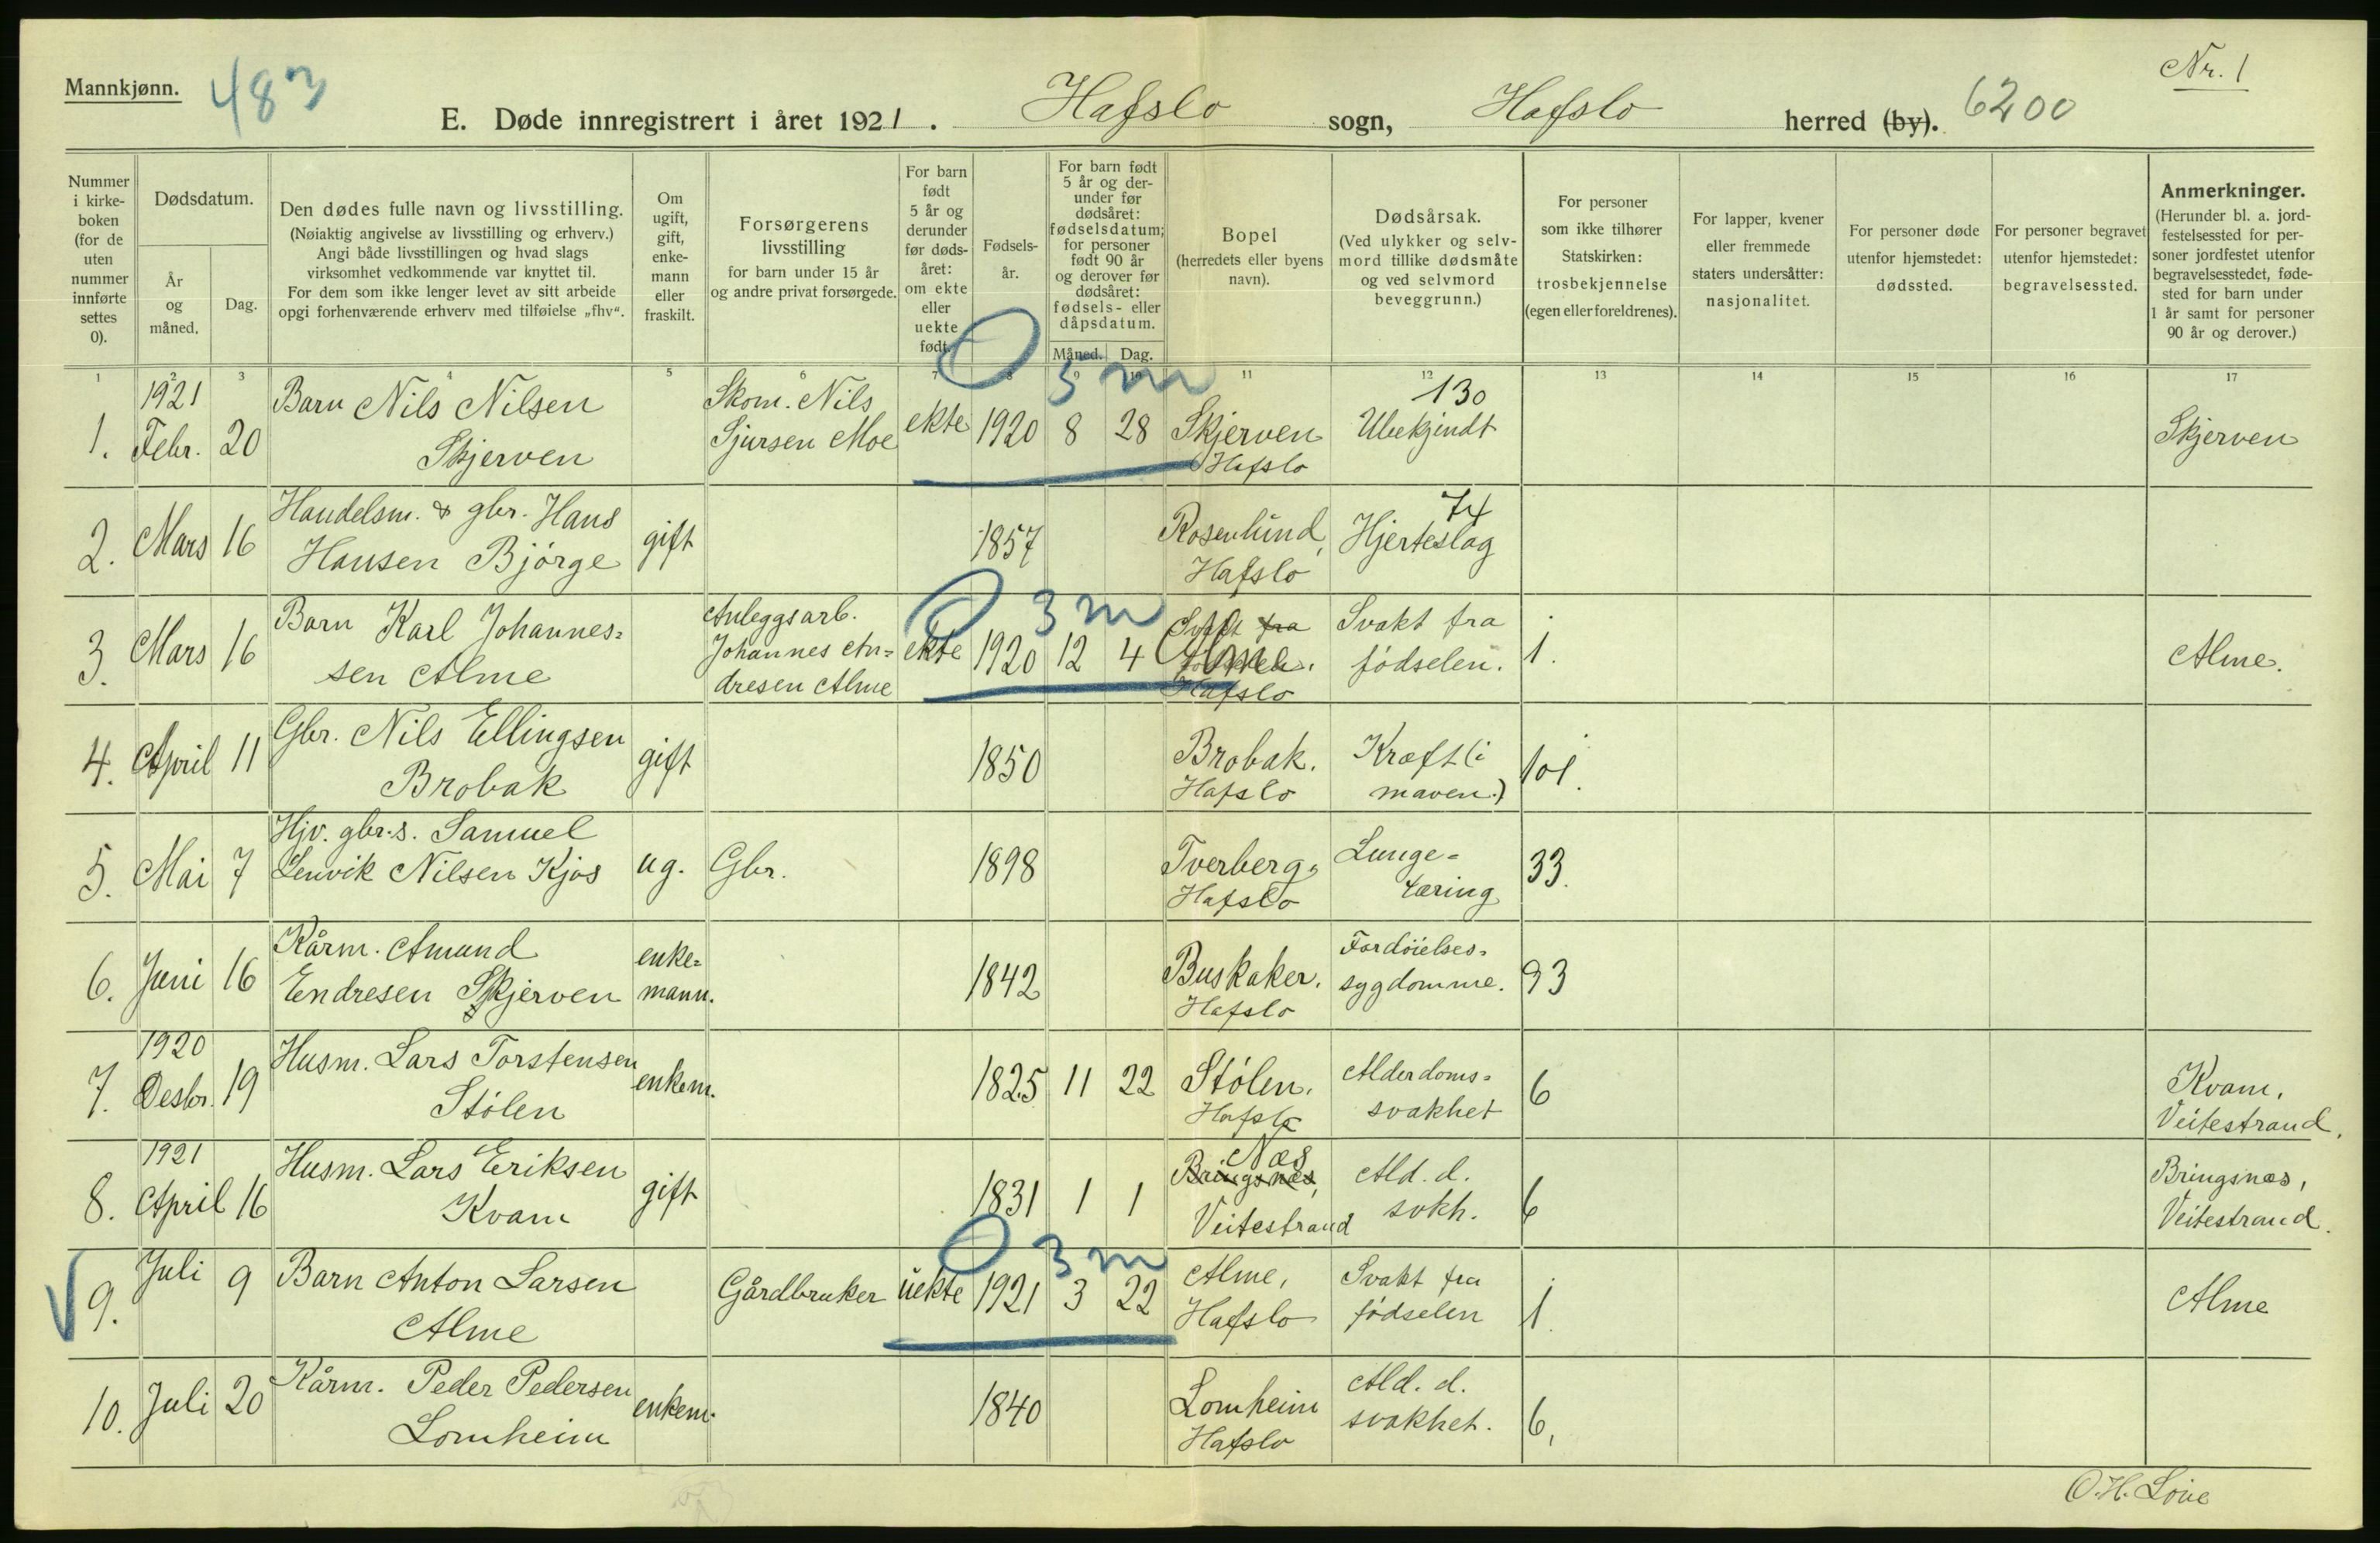 Mannkjønn.
483
Nr. 1
E. Døde innregistrert i året 1921. Hafslo sogn, Hafslo herred (by). 6200
Nummer i kirke-boken (for de uten nummer innførte settes 0).
Dødsdatum.
År og måned.
Dag.
Den dødes fulle navn og livsstilling.
(Nøiaktig angivelse av livsstilling og erhverv.)
Angi både livsstillingen og hvad slags
virksomhet vedkommende var knyttet til.
For dem som ikke lenger levet av sitt arbeide
opgi forhenværende erhverv med tilføielse „fhv“.
Om ugift, gift, enke-mann eller fraskilt.
Forsørgerens
livsstilling
for barn under 15 år
og andre privat forsørgede.
For barn født 5 år og derunder før døds-året: om ekte eller uekte født.
Fødsels-år.
For barn født 5 år og der-under før dødsåret: fødselsdatum; for personer født 90 år og derover før dødsåret: fødsels- eller dåpsdatum.
Måned. Dag.
Bopel
(herredets eller byens
navn).
Dødsårsak.
(Ved ulykker og selv-
mord tillike dødsmåte
og ved selvmord
beveggrunn.)
For personer
som ikke tilhører
Statskirken:
trosbekjennelse
(egen eller foreldrenes).
For lapper, kvener
eller fremmede
staters undersåtter:
nasjonalitet.
For personer døde
utenfor hjemstedet:
dødssted.
For personer begravet
utenfor hjemstedet:
begravelsessted.
Anmerkninger.
(Herunder bl. a. jord-
festelsessted for per-
soner jordfestet utenfor
begravelsesstedet, føde-
sted for barn under
1 år samt for personer
90 år og derover.)
1 2 3 4 5 6 7 8 9 10 11 12 13 14 15 16 17
1921 Barn Nils Nilsen Skom. Nils 0 5 m 130
1. Febr. 20 Skjerven Sjursen Moe ekte 1920 8 28 Skjerven Ubekjendt Skjerven
Hafslo
Handelsm. & gbr. Hans 74
2. Mars 16 Hansen Bjørge gift 1857 Rosenlund, Hjerteslag
Hafslo
Barn Karl Johannes= Anleggsarb. 0 3 m Svakt fra Svakt fra
3. Mars 16 sen Alme Johannes An= ekte 1920 12 4 Alme fødselen. 1. Alme.
dresen Alme Hafslo
Gbr. Nils Ellingsen
4. April 11 Brobak gift 1850 Brobak. Kræft (i 101.
Hafslo maven.)
Hjv. gbr.s. Samuel
5. Mai 7 Lenvik Nilsen Kjos ug. Gbr. 1898 Tverberg, Lunge= 33.
Hafslo tæring
Kårm. Amund enke= Fordøielses=
6. Juni 16 Endresen Skjerven mann. 1842 Buskaker. sygdomme. 93
Hafslo
1920 Husm. Lars Torstensen
7. Desbr. 19 Stølen enkem. 1825 11 22 Stølen. Alderdoms= 6 Kvam,
Hafslo svakhet Veitestrand.
1921 Husm. Lars Eriksen Næs
8. April 16 Kvam gift 1831 1 1 Bringsnæs, Ald. d. 6 Bringsnæs,
Veitestrand svkh. Veitestrand.
0 3 m
9. Juli 9 Barn Anton Larsen Gårdbruker uekte 1921 3 22 Alme, Svakt fra 1. Alme
Alme Hafslo fødselen
Kårm. Peder Pedersen Ald. d.
10. Juli 20 Lomheim enkem. 1840 Lomheim svakhet. 6.
Hafslo
O.H. Løne